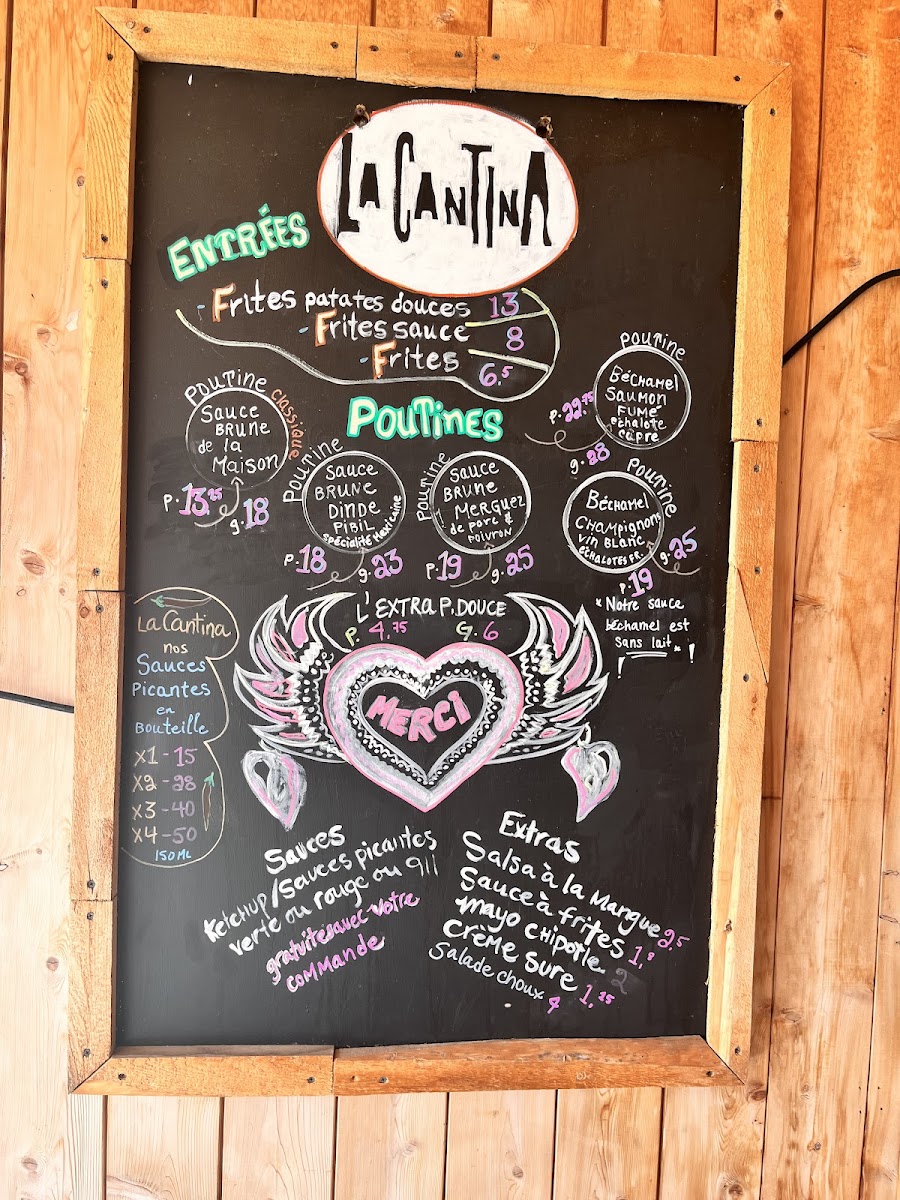 LA CANTINA
ENTRÉES
- Frites patates douces 13
- Frites sauce 8
- Frites 6.5
POUTINES
POUTINE classique
Sauce
BRUNE
de la
Maison
P. 13.25
g. 18
POUTINE
Sauce
BRUNE
DINDE
PIBIL
spécialité Mexicaine
P. 18
g. 23
POUTINE
Sauce
BRUNE
MERGUEZ
de porc &
poivron
P. 19
g. 25
POUTINE
BÉCHAMEL
SAUMON
FUMÉ
échalote
câpre
P. 22.75
g. 28
POUTINE
BÉCHAMEL
CHAMPignons
vin BLANC
ÉCHALOTES FR.
P. 19
g. 25
* Notre sauce
béchamel est
sans lait *
! !
L'EXTRA P. DOUCE
P. 4.75 G. 6
MERCI
La Cantina
nos
Sauces
Picantes
en
Bouteille
X1 - 15
X2 - 28
X3 - 40
X4 - 50
150 ML
Sauces
Ketchup/Sauces picantes
verte ou rouge ou 911
gratuites avec votre
commande
Extras
Salsa à la Mangue 2.5
Sauce à frites 1.8
mayo chipotle 2
crème sure 1.25
Salade choux 4